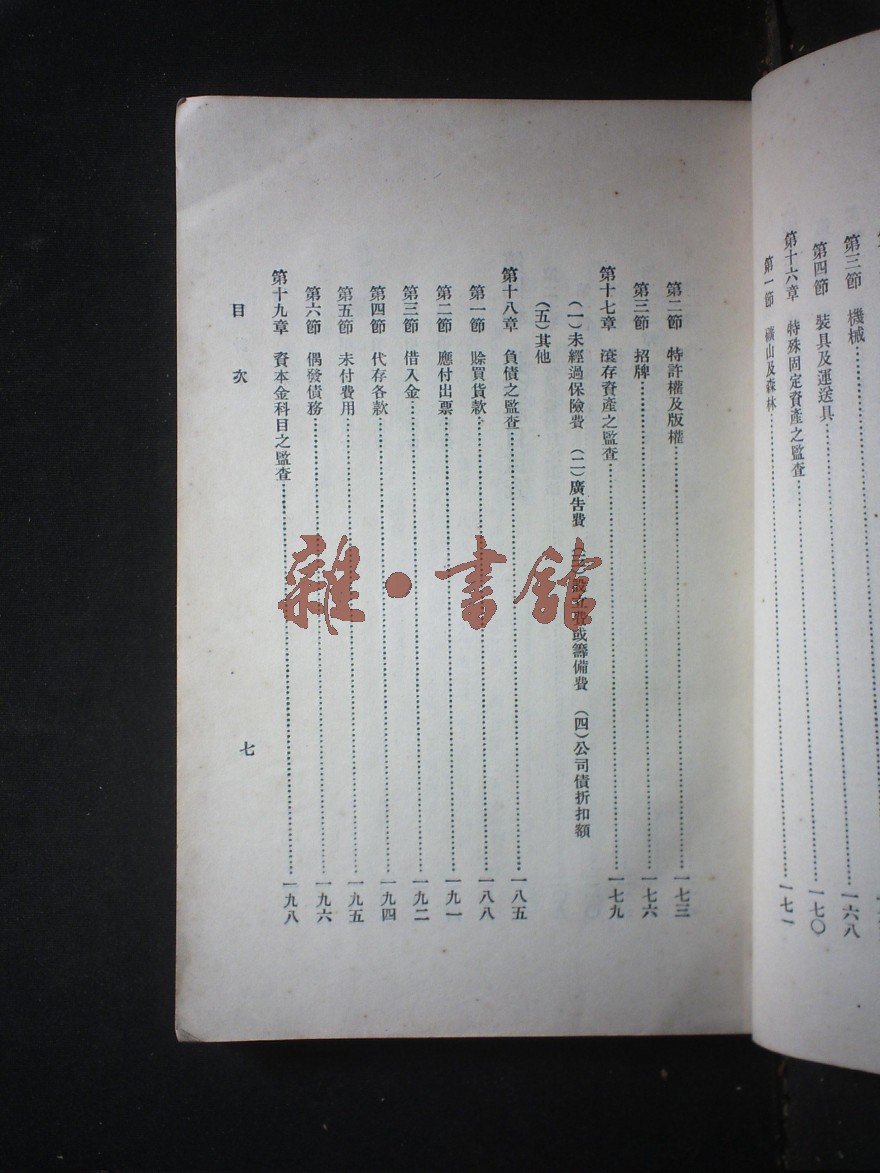 第三節 機械……一六八
第四節 裝具及運送具……一七〇
第十六章 特殊固定資產之監查
第一節 礦山及森林……一七一
第二節 特許權及版權……一七三
第三節 招牌……一七六
第十七章 滾存資產之監查……一七九
(一)未經過保險費 (二)廣告費 (三)設立費或籌備費 (四)公司債折扣額
(五)其他
第十八章 負債之監查……一八五
第一節 賒買貨款……一八八
第二節 應付出票……一九一
第三節 借入金……一九二
第四節 代存各款……一九四
第五節 未付費用……一九五
第六節 偶發債務……一九六
第十九章 資本金科目之監查……一九八
目次
七
雜·書館